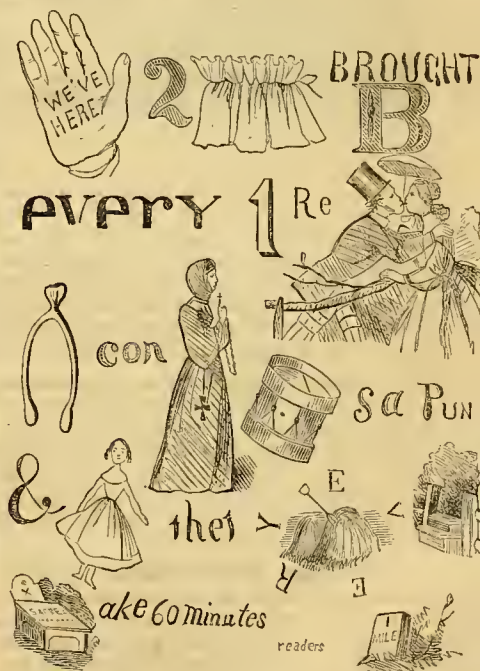 WE'VE
HERE,
2
BROUGHT
B
every 1 Re
con
sa PUN
& thet Y E V
R E
ake 60 minutes
readers
MILE